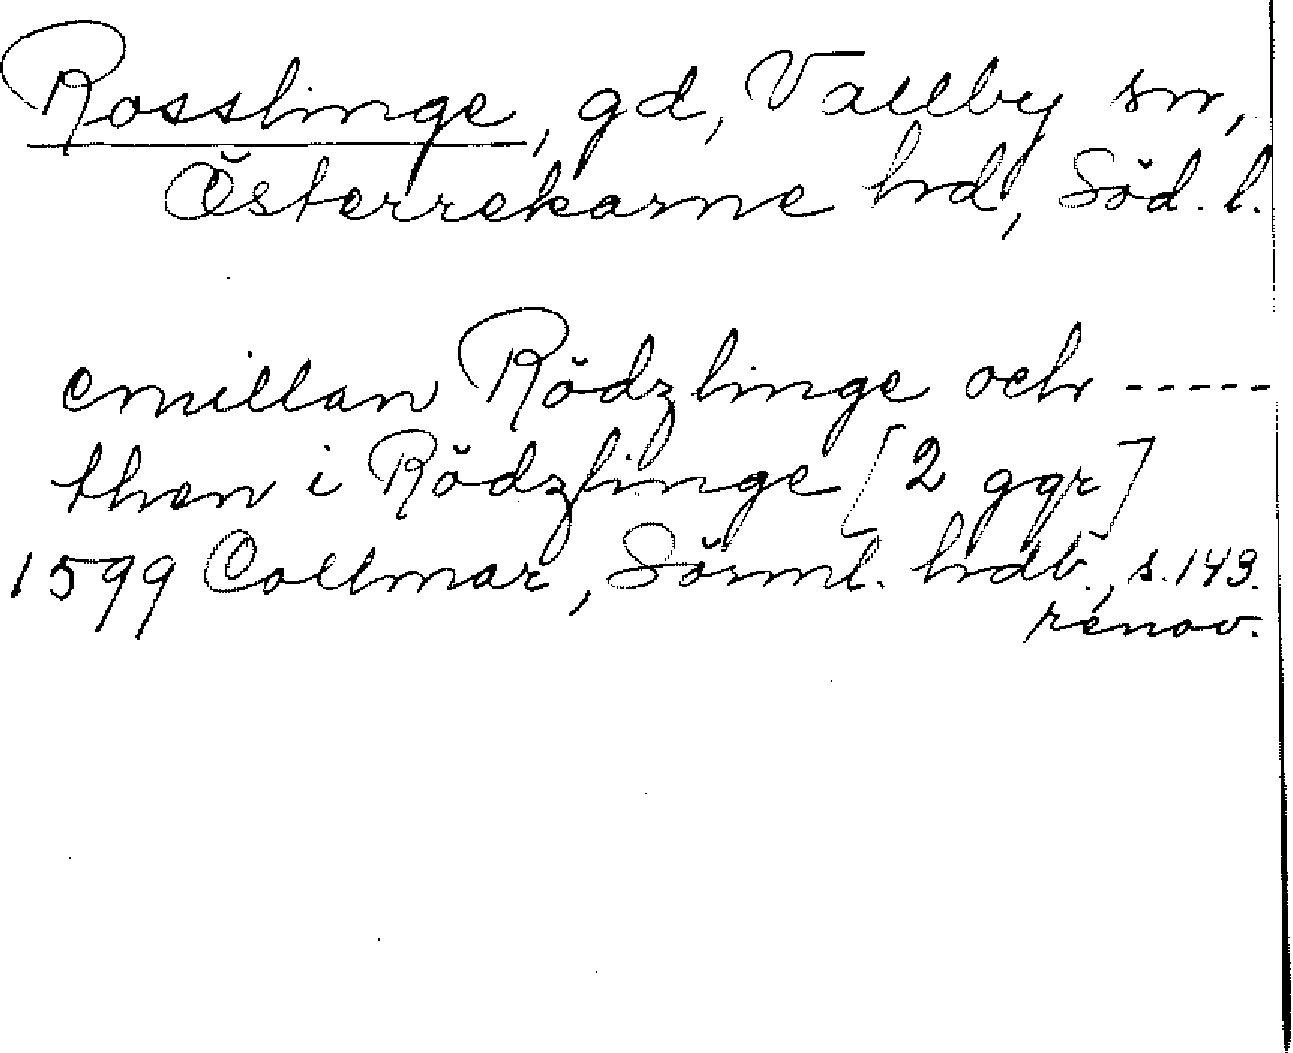 Rosslinge, gd, Vallby sn,
Österrekarne hd, Söd. l.
emillan Rödzlinge och -----
then i Rödzlinge [2 ggr]
1599 Collmar, Sörml. hdb., s. 143.
renov.